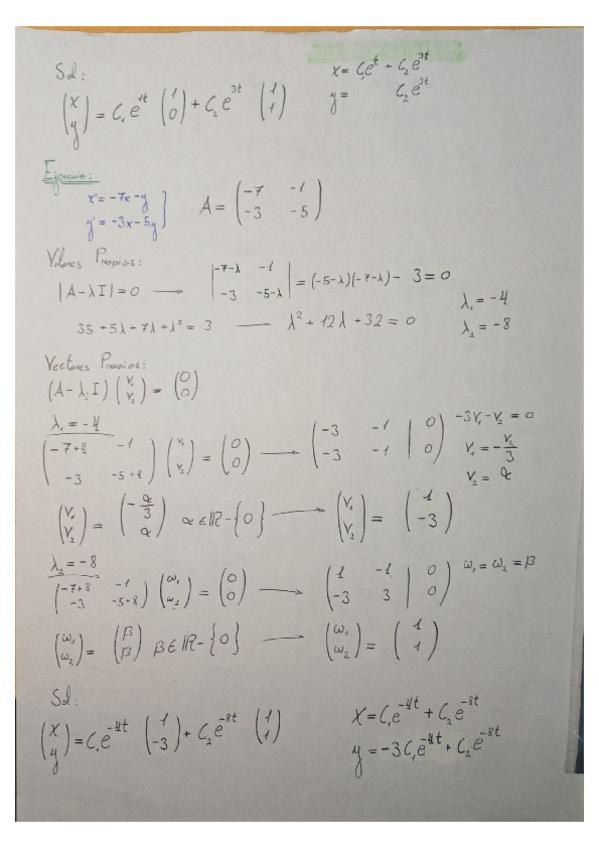 Sol:
(x y) = C₁e^{1t} (1 0) + C₂e^{3t} (1 1)
x = C₁e^t + C₂e^{3t}
y = C₂e^{3t}
Ejercicio:
x' = -7x-y
y' = -3x-5y }
A = (-7 -1 -3 -5)
Valores Propios:
|A-λI| = 0 → |-7-λ -1 -3 -5-λ| = (-5-λ)(-7-λ) - 3 = 0
35+5λ+7λ+λ² = 3 — λ²+12λ+32 = 0
λ₁ = -4
λ₂ = -8
Vectores Propios:
(A-λᵢI) (v₁ v₂) = (0 0)
λ₁ = -4
(-7+4 -1 -3 -5+4) (v₁ v₂) = (0 0) → (-3 -1 | 0 -3 -1 | 0)
-3v₁-v₂ = 0
v₁ = -v₂/3
v₂ = α
(v₁ v₂) = (-α/3 α) α∈ℝ-{0} → (v₁ v₂) = (1 -3)
λ₂ = -8
(-7+8 -1 -3 -5+8) (ω₁ ω₂) = (0 0) → (1 -1 | 0 -3 3 | 0) ω₁ = ω₂ = β
(ω₁ ω₂) = (β β) β∈ℝ-{0} → (ω₁ ω₂) = (1 1)
Sol:
(x y) = C₁e^{-4t} (1 -3) + C₂e^{-8t} (1 1)
x = C₁e^{-4t} + C₂e^{-8t}
y = -3C₁e^{-4t} + C₂e^{-8t}